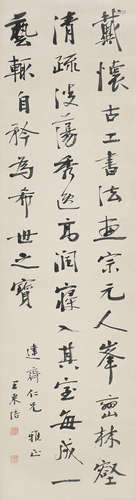 戴懷古工書法畫宗元人峯巒林壑
清疏澹蕩秀逸高潤寢入其室每成一
藝輒自矜為希世之寶
達齋仁兄雅正
王東培